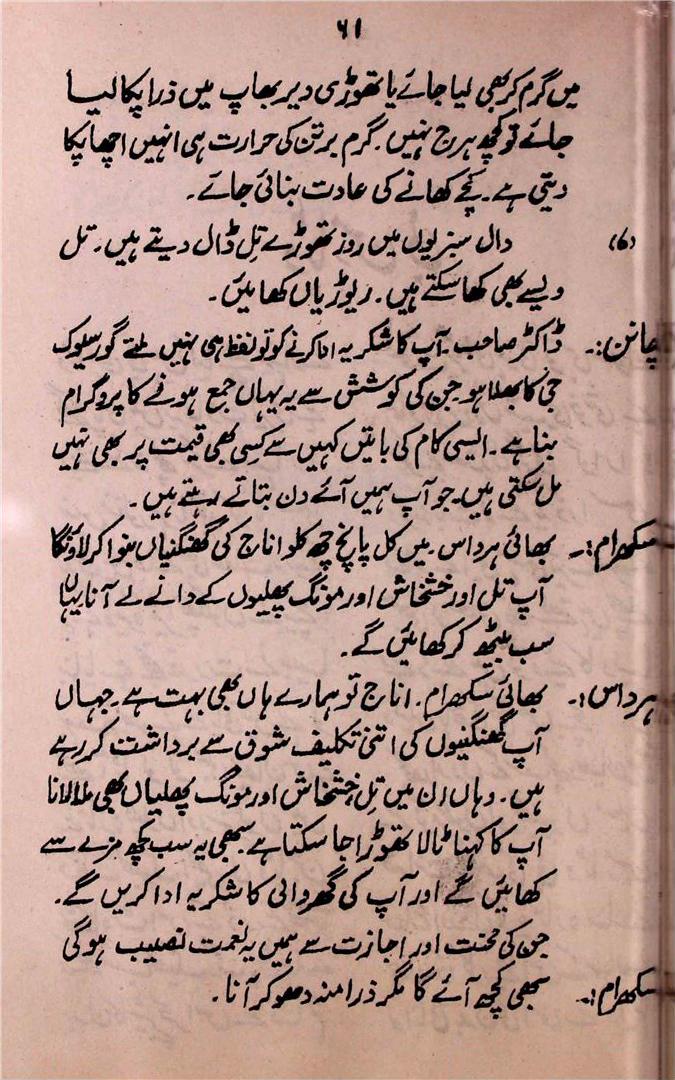 ۶۱
میں گرم کر بھی لیا جائے یا تھوڑی دیر بھاپ میں ذرا پکا لیا
جائے تو کچھ ہرج نہیں۔ گرم برتن کی حرارت ہی انہیں اچھا پکا
دیتی ہے۔ کچے کھانے کی عادت بنائی جائے۔
(۷) دال سبزیوں میں روز تھوڑے تِل ڈال دیتے ہیں۔ تل
ویسے بھی کھا سکتے ہیں۔ ریوڑیاں کھائیں۔
چانن:۔ ڈاکٹر صاحب۔ آپ کا شکریہ ادا کرنے کو تو لفظ ہی نہیں ملتے گورسیوک
جی کا بھلا ہو جن کی کوشش سے یہ یہاں جمع ہونے کا پروگرام
بنا ہے۔ ایسی کام کی باتیں کہیں سے کِسی بھی قیمت پر بھی نہیں
مل سکتی ہیں۔ جو آپ ہمیں آئے دن بتاتے رہتے ہیں۔
سکھرام:۔ بھائی ہرداس۔ میں کل پانچ چھ کلو اناج کی گھنگنیاں بنوا کر لاؤنگا
آپ تل اور خشخاش اور مونگ پھلیوں کے دانے لے آنا یہاں
سب بیٹھ کر کھائیں گے۔
ہرداس:۔ بھائی سکھرام۔ اناج تو ہمارے ہاں بھی بہت ہے۔ جہاں
آپ گھنگنیوں کی اتنی تکلیف شوق سے برداشت کر رہے
ہیں۔ وہاں ان میں تِل خشخاش اور مونگ پھلیاں بھی ملا لانا
آپ کا کہنا ٹالا تھوڑا جا سکتا ہے سبھی یہ سب کچھ مزے سے
کھائیں گے اور آپ کی گھر والی کا شکریہ ادا کریں گے۔
جن کی محنت اور اجازت سے ہمیں یہ نعمت نصیب ہوگی
سکھرام:۔ سبھی کچھ آئے گا مگر ذرا منہ دھو کر آنا۔